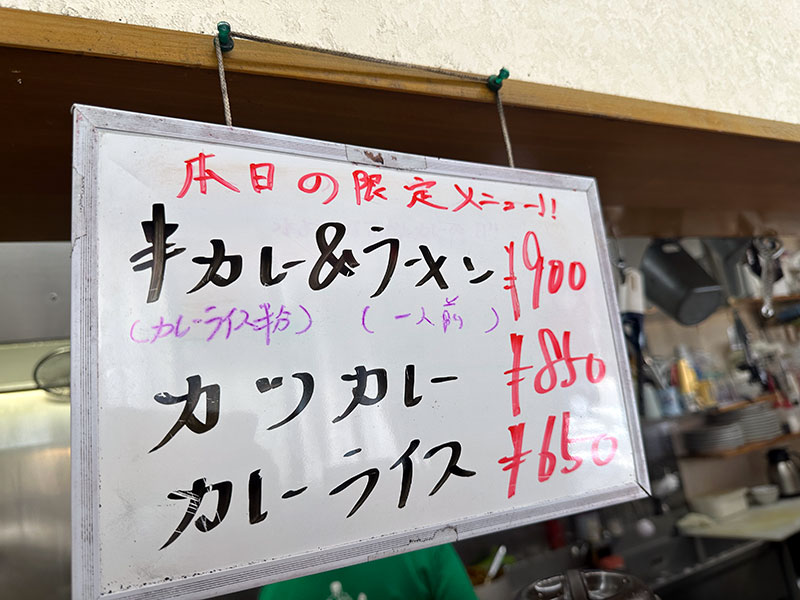 本日の限定メニュー!!
半カレー&ラーメン ¥900
(カレーライス半分) (一人前)
カツカレー ¥850
カレーライス ¥650